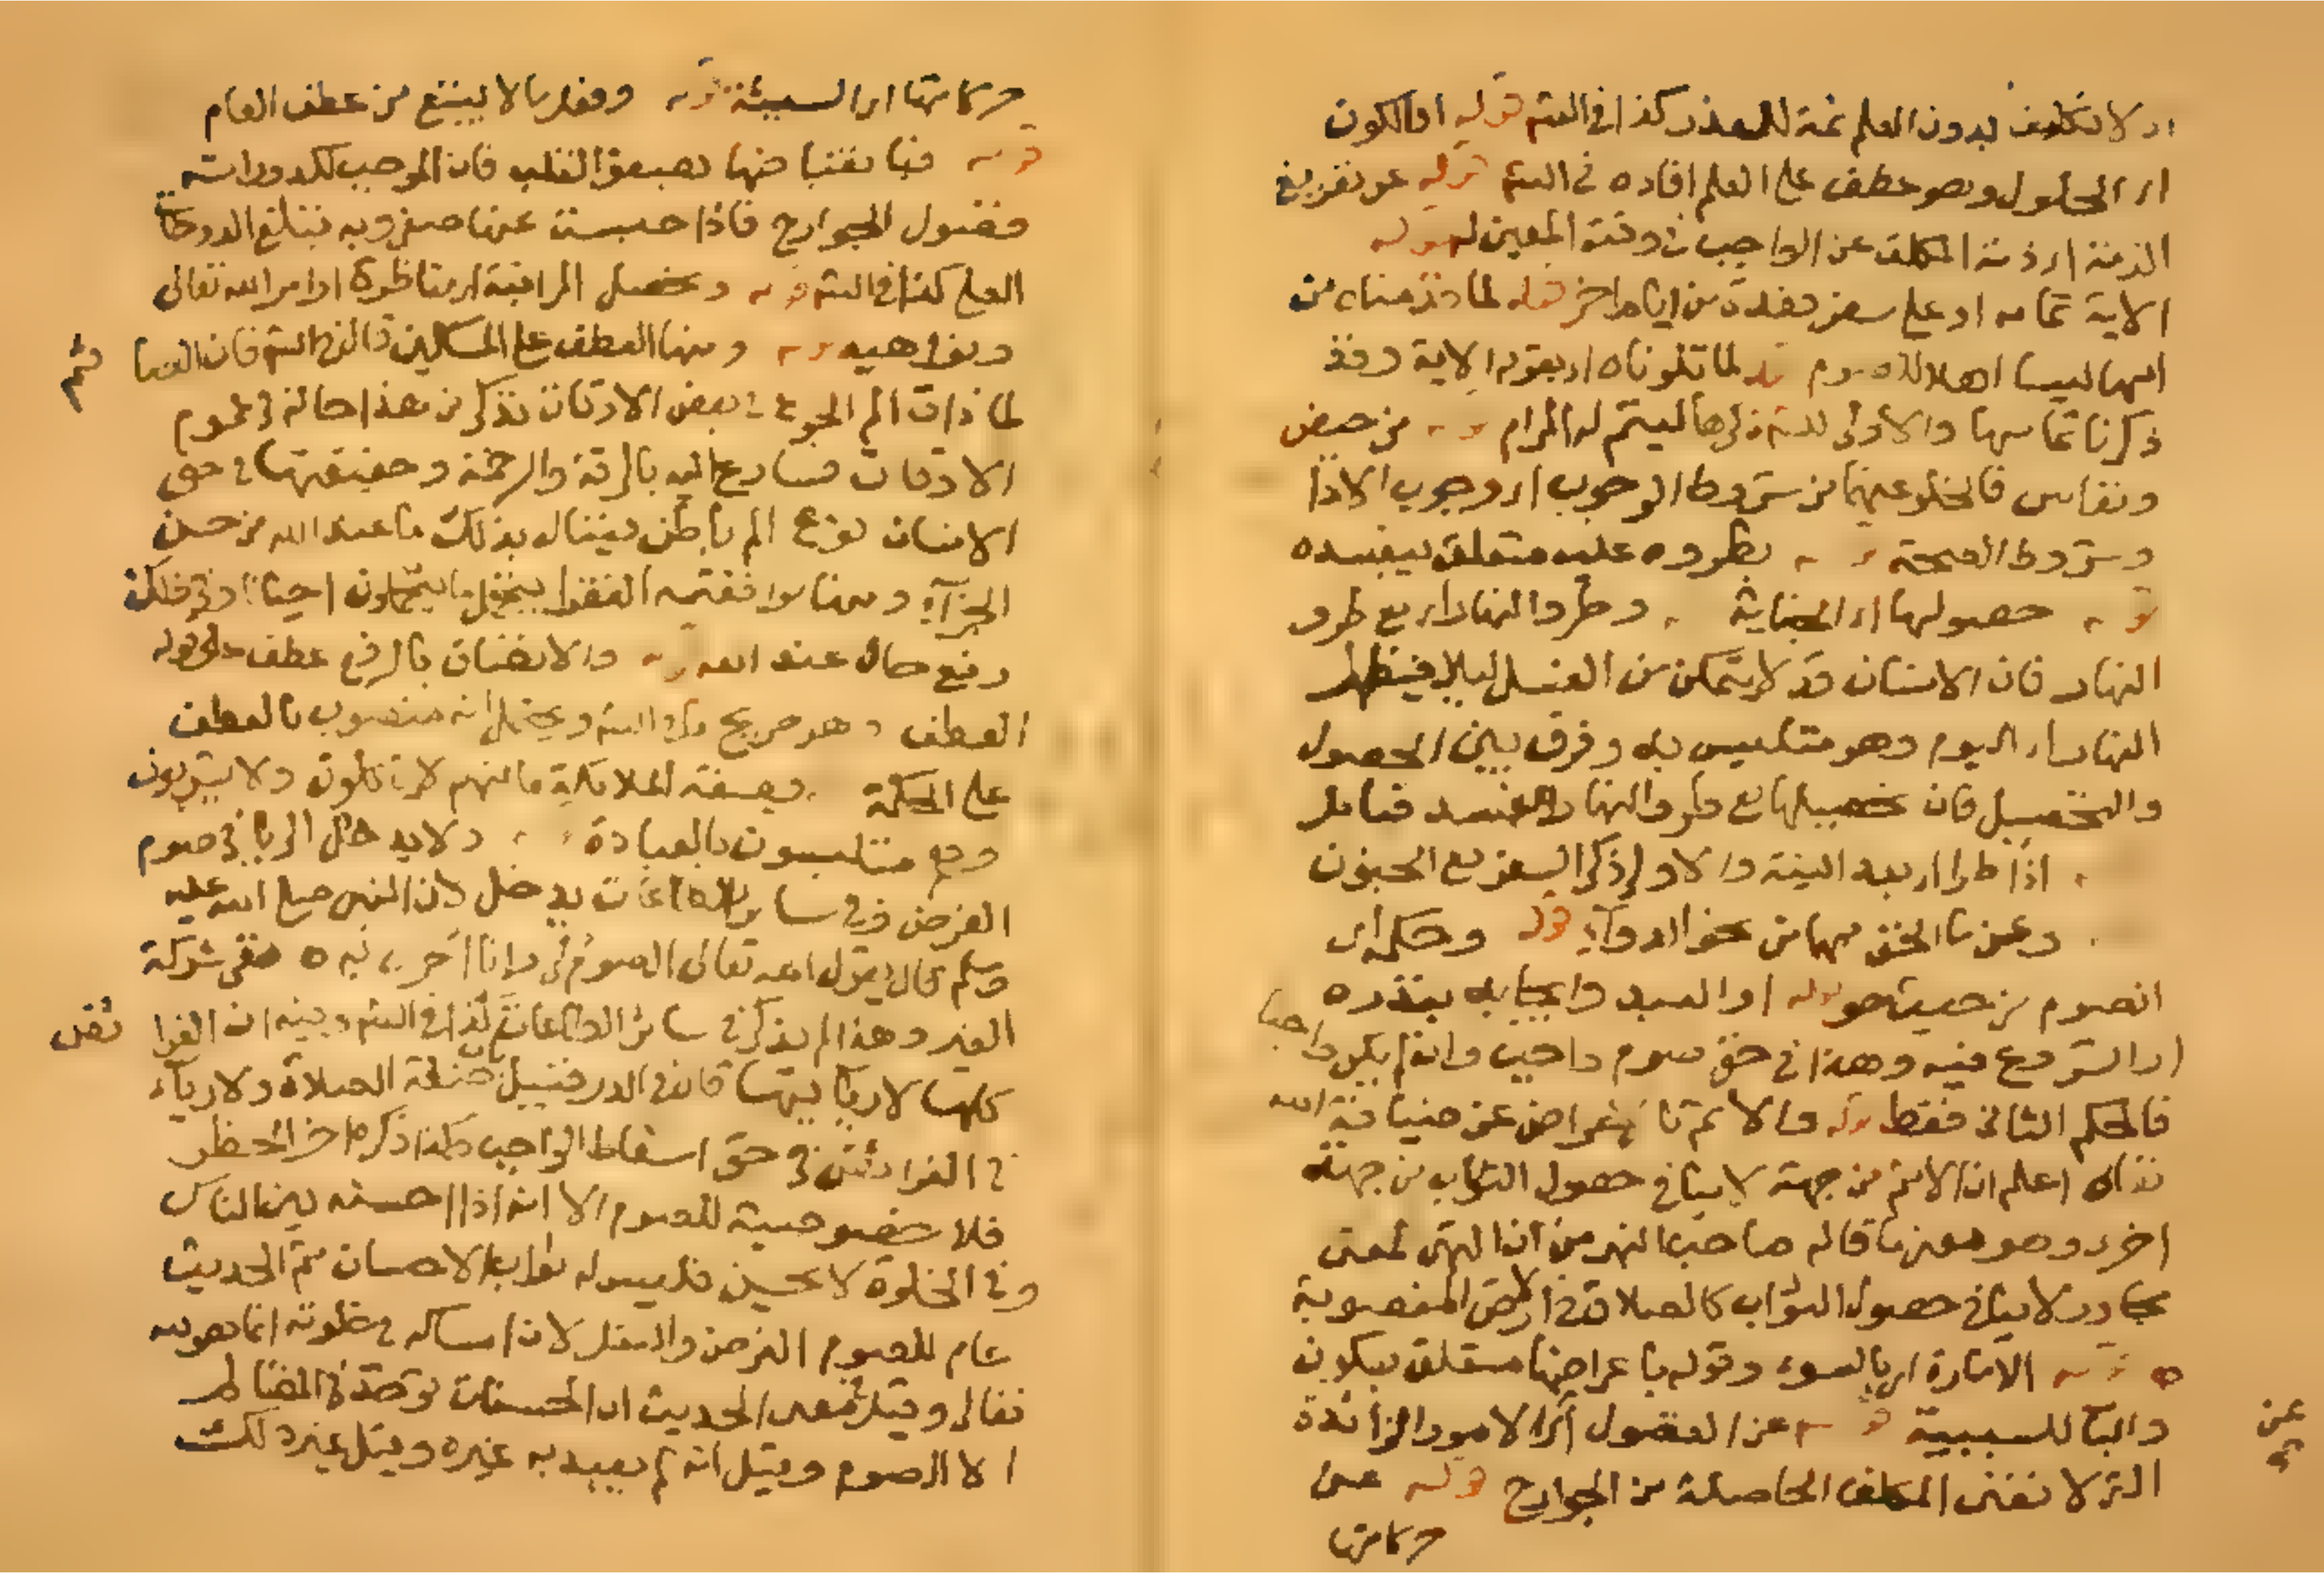 اذ لا تكليف بدون العلم ثمة للعذر كذا في الشر قوله او الكون
اي الحلول وهو عطف على العلم افاده في الشر قوله عن تفريغ
الذمة اي ذمة المكلف عن الواجب في وقته المعين له قوله
الاية تمامه او على سفر فعدة من ايام اخر قوله لما قدمناه من
انهما ليسا اهلا للصوم قوله لما تلوناه اي بقوله الاية وقد
ذكرنا تمامها والاولى له ذكرها ليتم له المرام قوله من حيض
ونفاس فالخلو عنهما من شروط الوجوب اي وجوب الادا
وشروط الصحة قوله بطروه عليه متعلق بيفسده
قوله حصولها اي الجناية وطرو النهار اي مع طرو
النهار فان الانسان قد لا يتمكن من الغسل ليلا فيظهر
النهار اي اليوم وهو متلبس به وفرق بين الحصول
والتحصيل فان تحصيلها مع طرو النهار مفسد فتامل
اذا طرا اي بعد النية والاولى ذكر السفر مع الجنون
وعن ما الحق بهما من نحو الدواء قوله وحكمه اي
الصوم من حيث هو قوله او العبد وايجابه بنذره
اي الشروع فيه وهذا في حق صوم واجب وان لم يكن واجبا
فالحكم الثاني فقط قوله والا ثم تا بإعراض عن ضيافة الله
تعالى اعلم ان الاثم من جهة لا ينافي حصول الثواب من جهة
اخرى وهو معنى ما قاله صاحب النهر من ان النهي لمعنى
مجاور لا ينافي حصول الثواب كالصلاة في ارض المغصوبة
قوله الامارة اي بالسوء وقوله باعراضها متعلق بيكون
والبا للسببية قوله عن الفضول اي الامور الزائدة
عن
التي لا تعني المكلف الحاصلة من الجوارح قوله عن
حركاتها
حركاتها اي السيئة قوله وفقد ما لا ينبغي من عطف العام
قوله فيا تقتبا منها بصفو القلب فان الموجب لكدوراته
فضول الجوارح فاذا حبست عنها صفى وبه تبتلغ الدرجات
العلى كذا في الشر قوله وتحصل المراقبة اي مناظرة اوامر الله تعالى
ونواهيه قوله ومنها العطف على المساكين قال في الشر فان الصا ئم
لما ذاق الم الجوع في بعض الاوقات تذكر من هذا حاله في عموم
الاوقات فسارع اليه بالرقة والرحمة وحقيقتها في حق
الانسان نوع الم باطن فينال بذلك ما عند الله من حسن
الجزاء ومنها موافقته الفقرا بتحمل ما يتحملون احيانا وفي ذلك
رفع حاله عند الله قوله والاتصاف بالرفع عطف على قوله
العطف وهو صريح ما في الشر ويحتمل انه منصوب بالعطف
على الحكمة بصفة الملائكة فانهم لا ياكلون ولا يشربون
وهم متلبسون بالعبادة ولا يدخل الريا في صوم
الفرض وفي سائر الطاعات يدخل لان النبي صلى الله عليه
وسلم قال يقول الله تعالى الصوم لي وانا اجزي به نفى شركة
الغير وهذا لم يذكر في سائر الطاعات كذا في الشر وفيه ان الفرا ئض
كلها لا ريا فيها قال في الدر قبيل باب صفة الصلاة ولا رياء
في الفرائض في حق اسقاط الواجب كذا ذكره اخر الحظر
فلا خصوصية للصوم الا انه اذا احسنه بين الناس
وفي الخلوة لا يحسن فليس له ثواب الاحسان ثم الحديث
عام للصوم الفرض والنفل لان امساكه في خلوته انما هو لله
تعالى وقيل معنى الحديث ان الحسنات توخذ في المظالم
الا الصوم وقيل انه لم يعبد به غيره وقيل غير ذلك